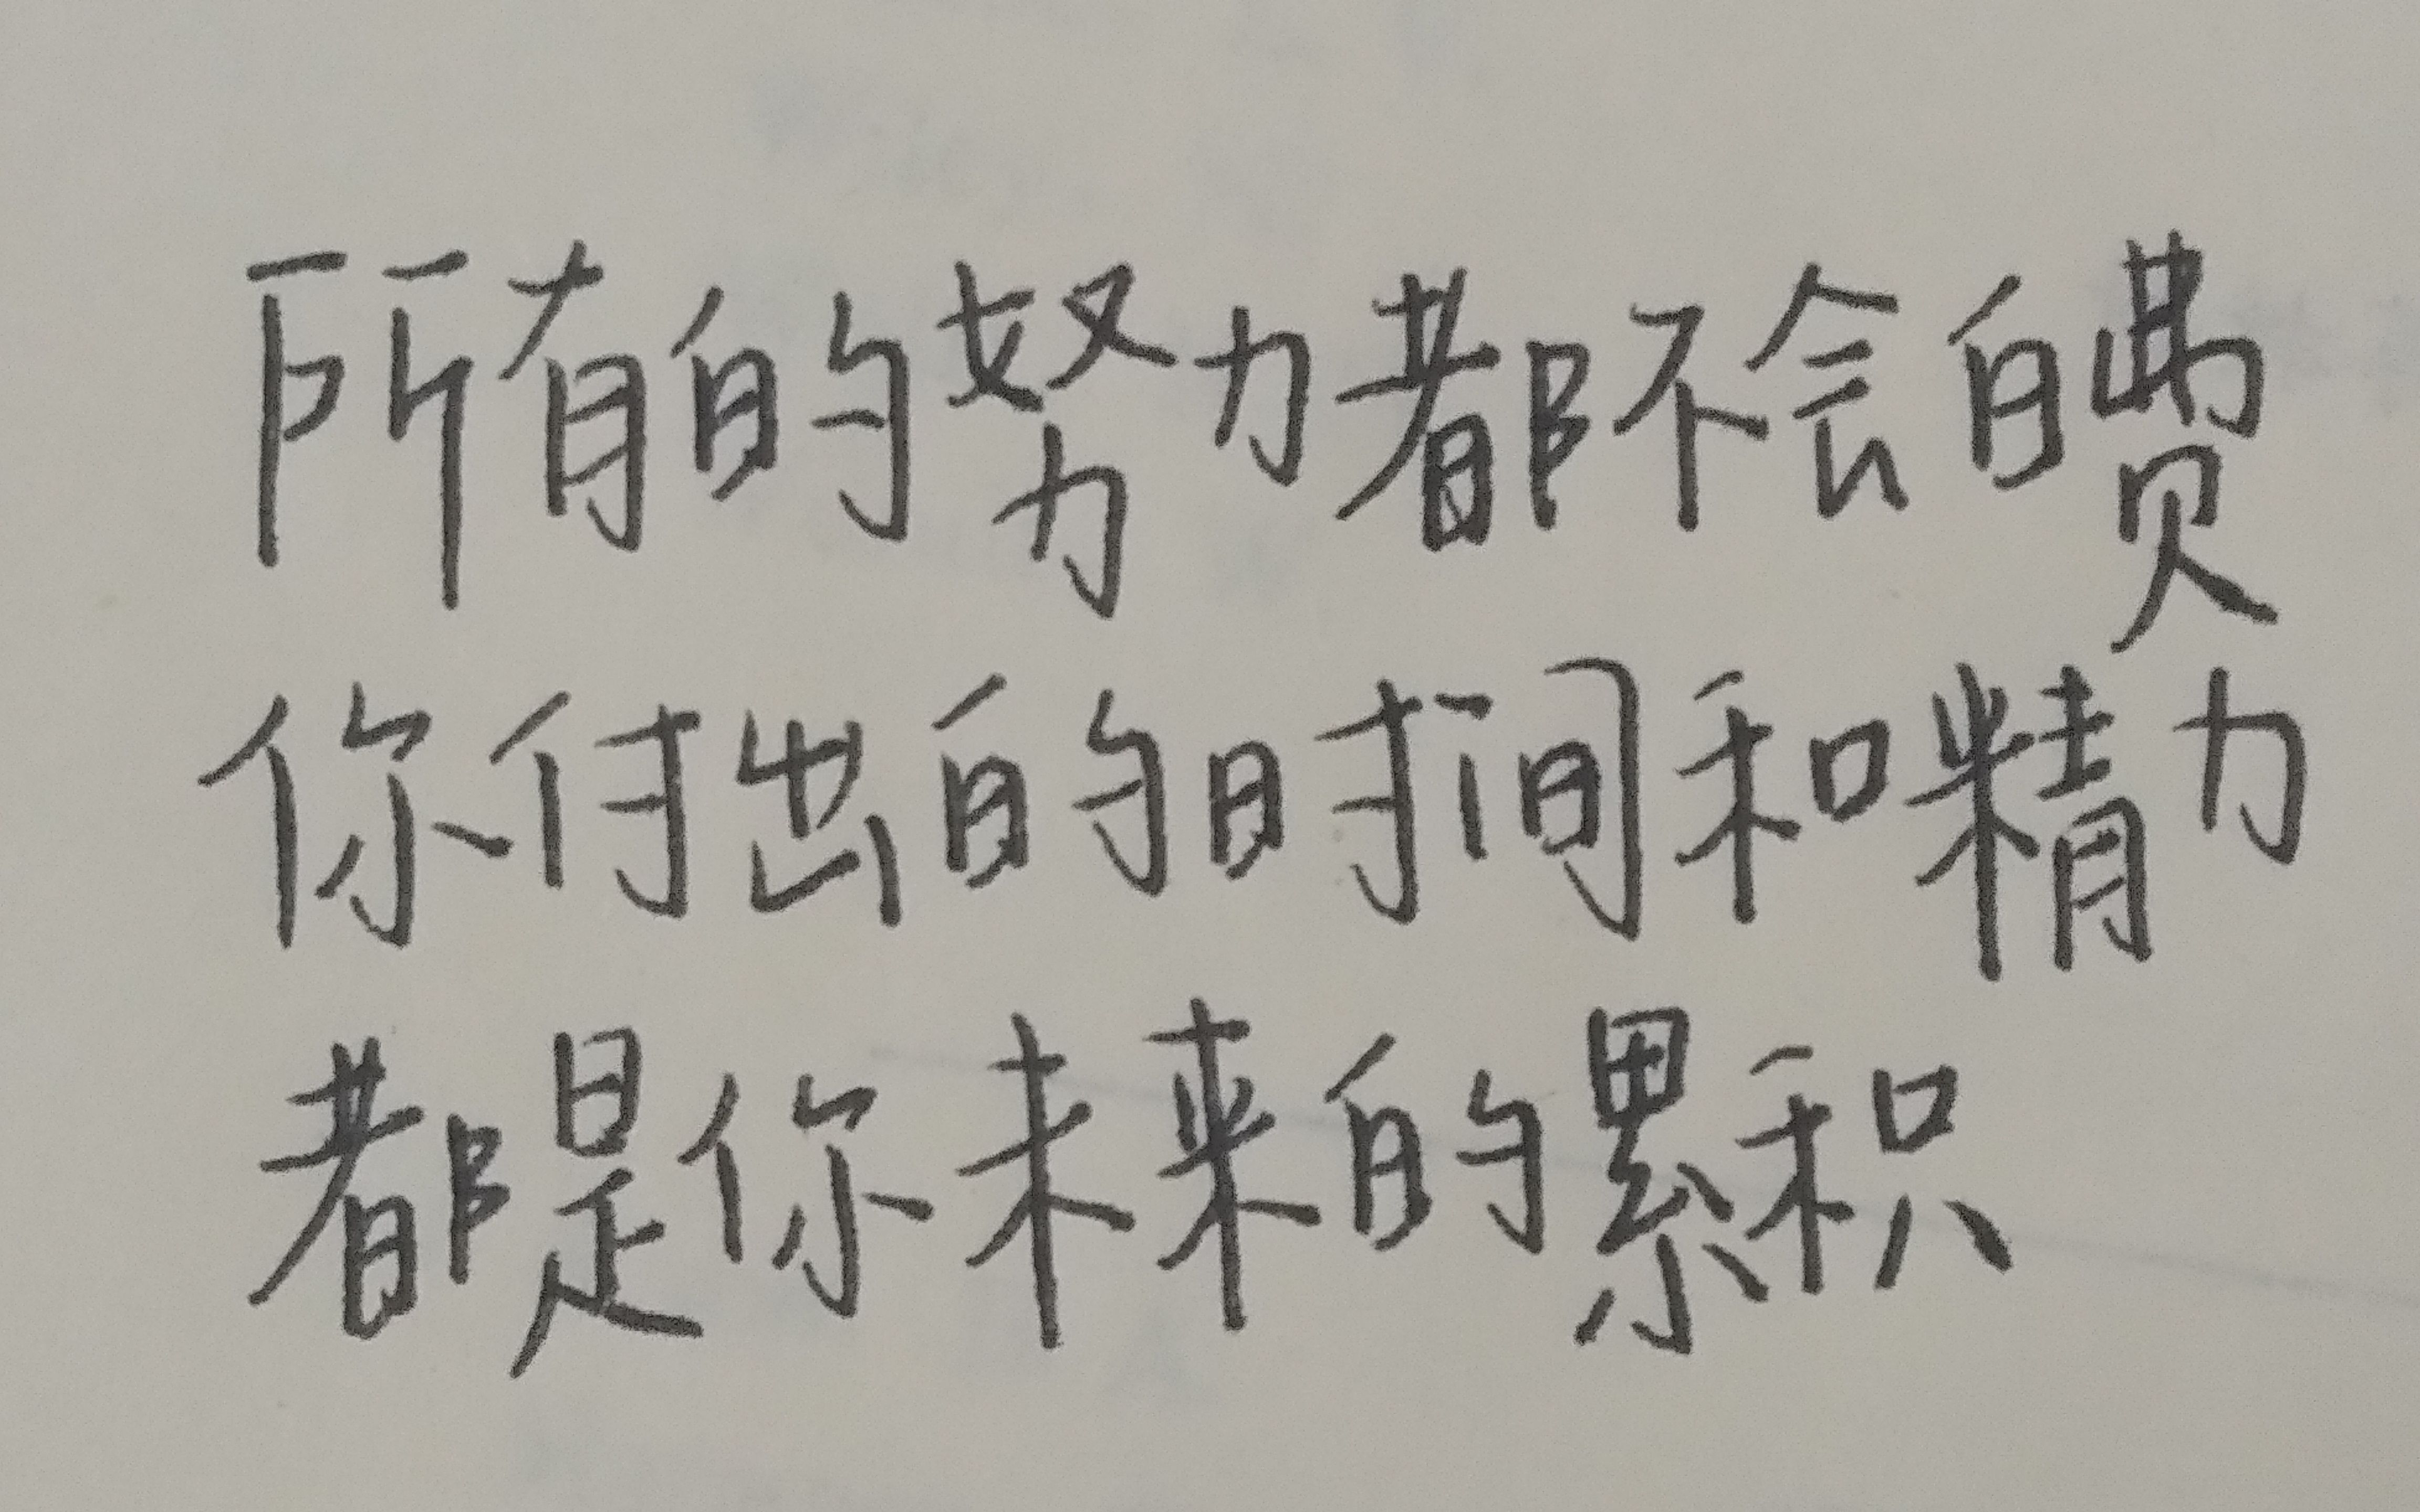 所有的努力都不会白费
你付出的时间和精力
都是你未来的累积